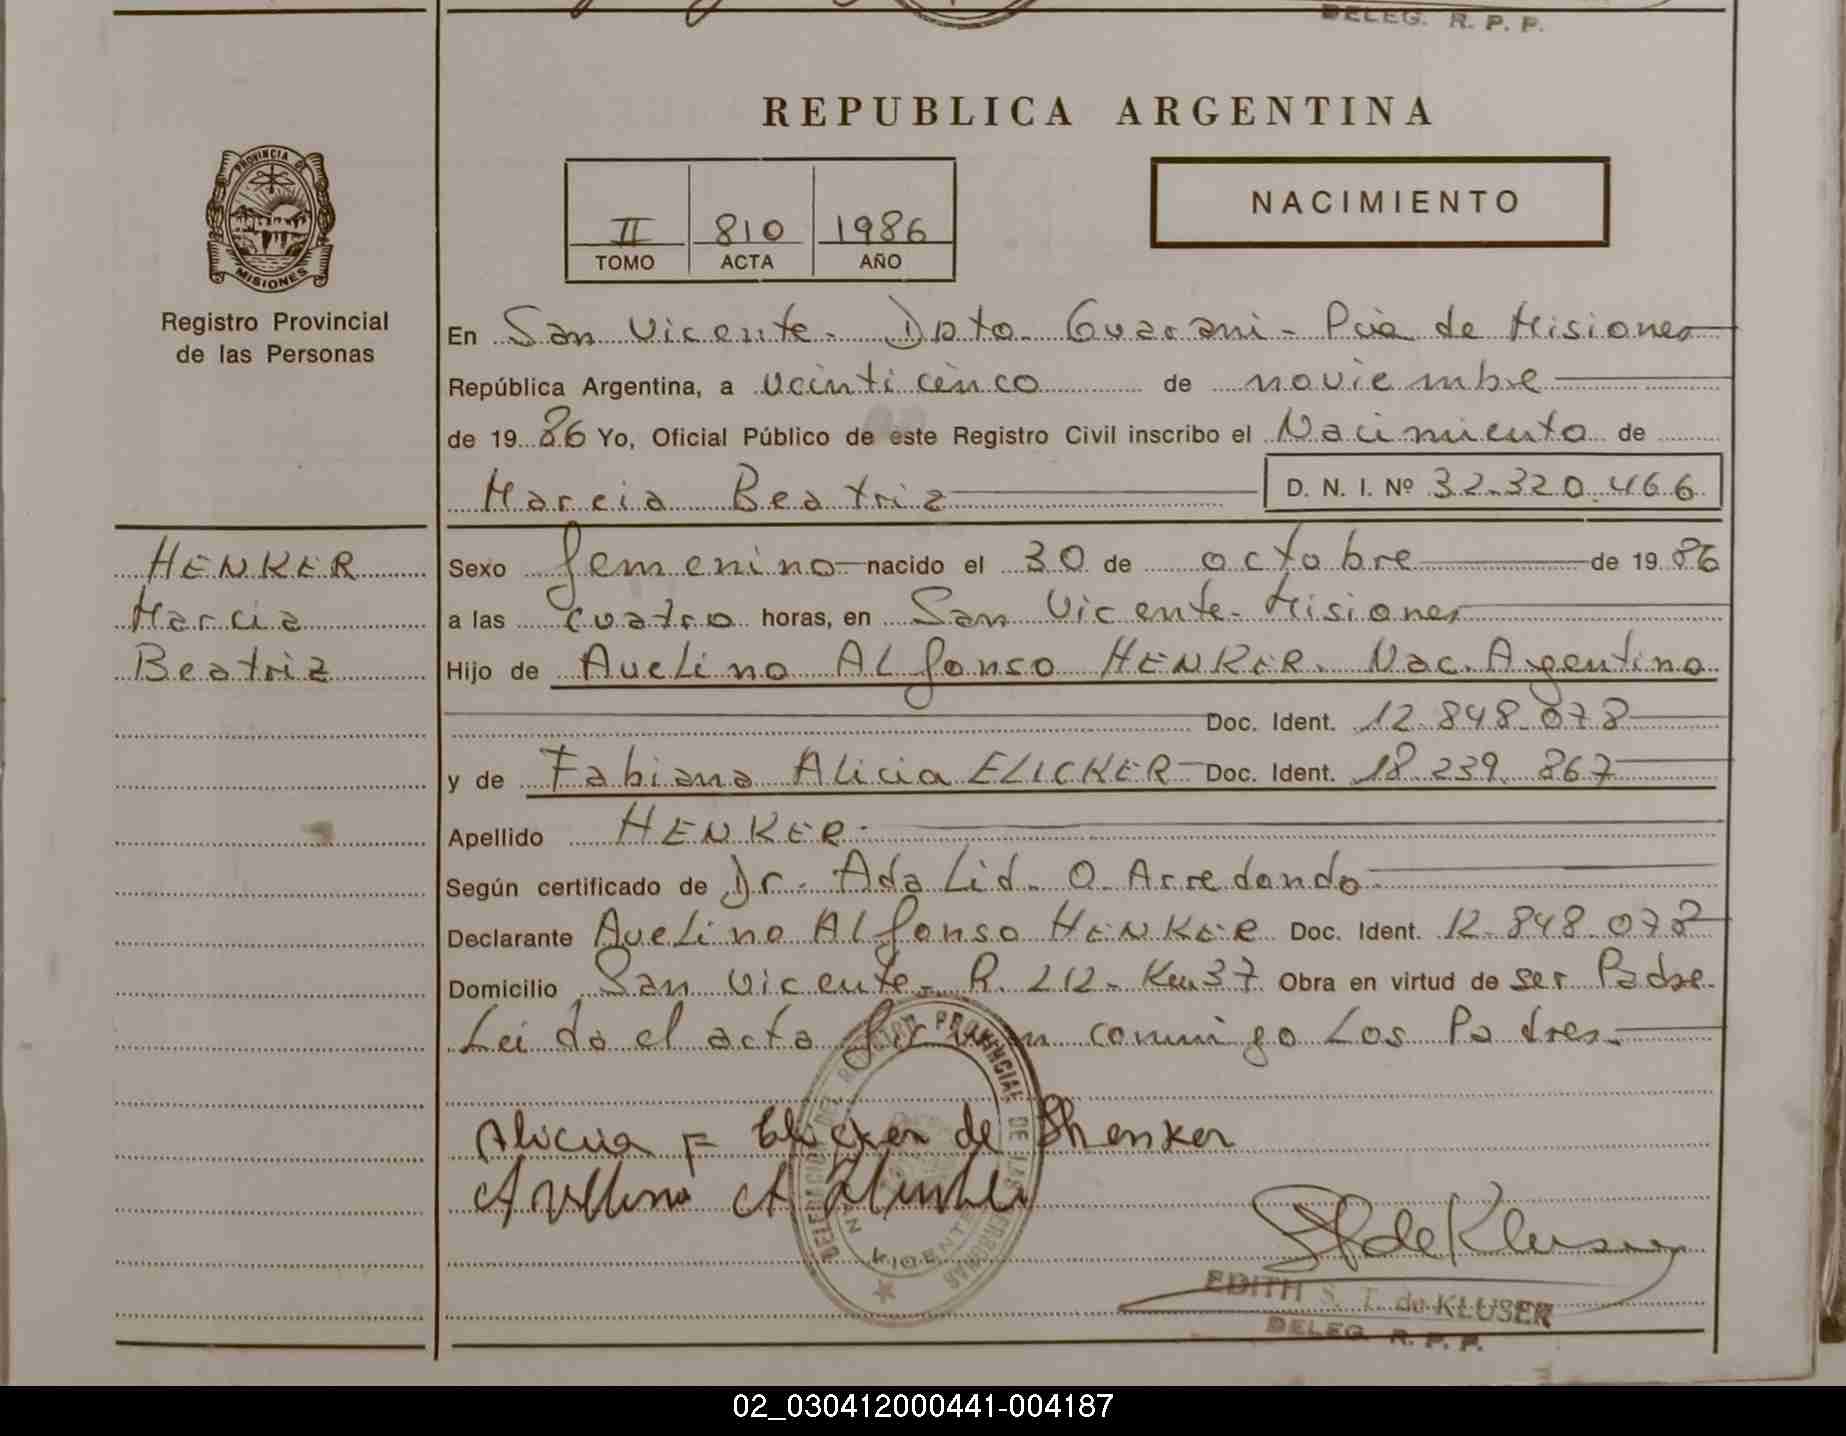 DELEG. R. P. P.
REPUBLICA ARGENTINA
PROVINCIA DE
MISIONES
Registro Provincial
de las Personas
II 810 1986
TOMO ACTA AÑO
NACIMIENTO
En San Vicente - Dpto. Guarani - Pcia de Misiones
República Argentina, a veinticinco de noviembre
de 1986 Yo, Oficial Público de este Registro Civil inscribo el Nacimiento de
Marcia Beatriz D. N. I. Nº 32.320.466
HENKER
Marcia
Beatriz
Sexo femenino nacido el 30 de octubre de 1986
a las cuatro horas, en San Vicente - Misiones
Hijo de Avelino Alfonso HENKER. Nac. Argentino
Doc. Ident. 12.848.078
y de Fabiana Alicia ELICKER Doc. Ident. 18.239.867
Apellido HENKER.
Según certificado de Dr. Adalid. O. Arredondo
Declarante Avelino Alfonso HENKER Doc. Ident. 12.848.078
Domicilio San Vicente - R. 212 - Km 37 Obra en virtud de ser Padre.
Leida el acta firman conmigo Los Padres.
Alicia F Elicker de Shenker
Avellino A
DELEGACION DEL REGISTRO PROVINCIAL DE LAS PERSONAS
SAN VICENTE
EDITH S. T. de KLUSER
DELEG. R. P. P.
02_030412000441-004187